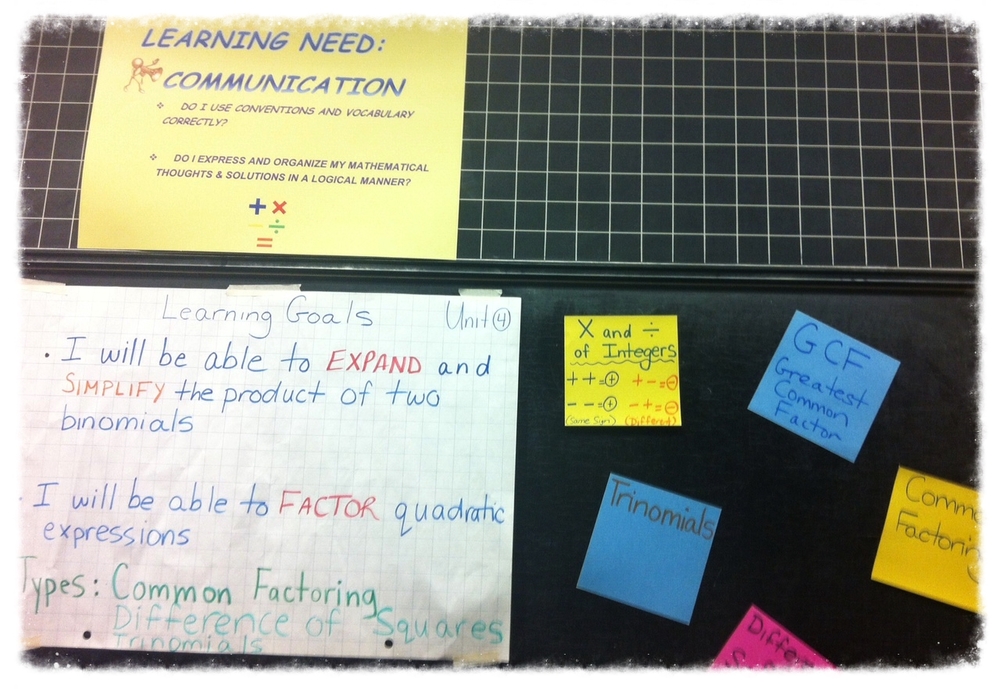 LEARNING NEED:
COMMUNICATION
❖ DO I USE CONVENTIONS AND VOCABULARY
CORRECTLY?
❖ DO I EXPRESS AND ORGANIZE MY MATHEMATICAL
THOUGHTS & SOLUTIONS IN A LOGICAL MANNER?
+ ×
− ÷
=
Learning Goals Unit ④
• I will be able to EXPAND and
SIMPLIFY the product of two
binomials
I will be able to FACTOR quadratic
expressions
Types: Common Factoring
Difference of Squares
Trinomials
X and ÷
of Integers
+ + = ⊕ + − = ⊖
− − = ⊕ − + = ⊖
(Same Sign) (Different)
GCF
Greatest
Common
Factor
Trinomials
Comm
Factoring
Differen